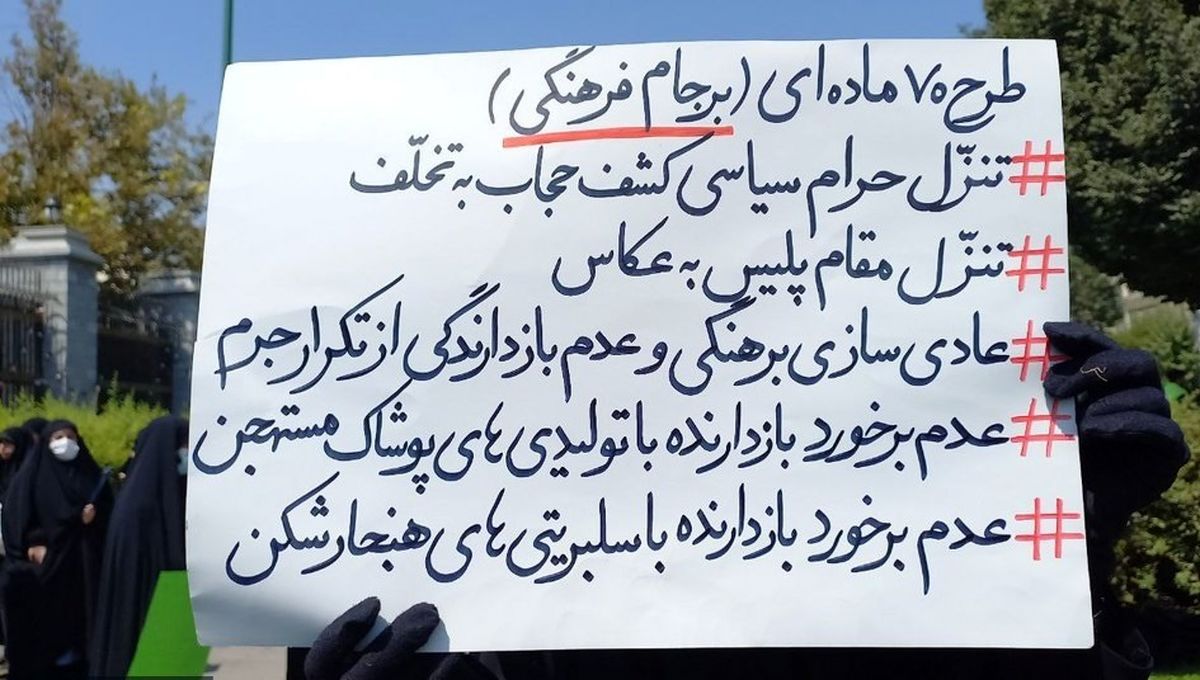 طرح ۷۰ ماده ای (برجام فرهنگی)
# تنزّل حرام سیاسی کشف حجاب به تخلّف
# تنزّل مقام پلیس به عکاس
# عادی سازی برهنگی و عدم بازدارندگی از تکرار جرم
# عدم برخورد بازدارنده با تولیدی های پوشاک مستهجن
# عدم برخورد بازدارنده با سلبریتی های هنجارشکن